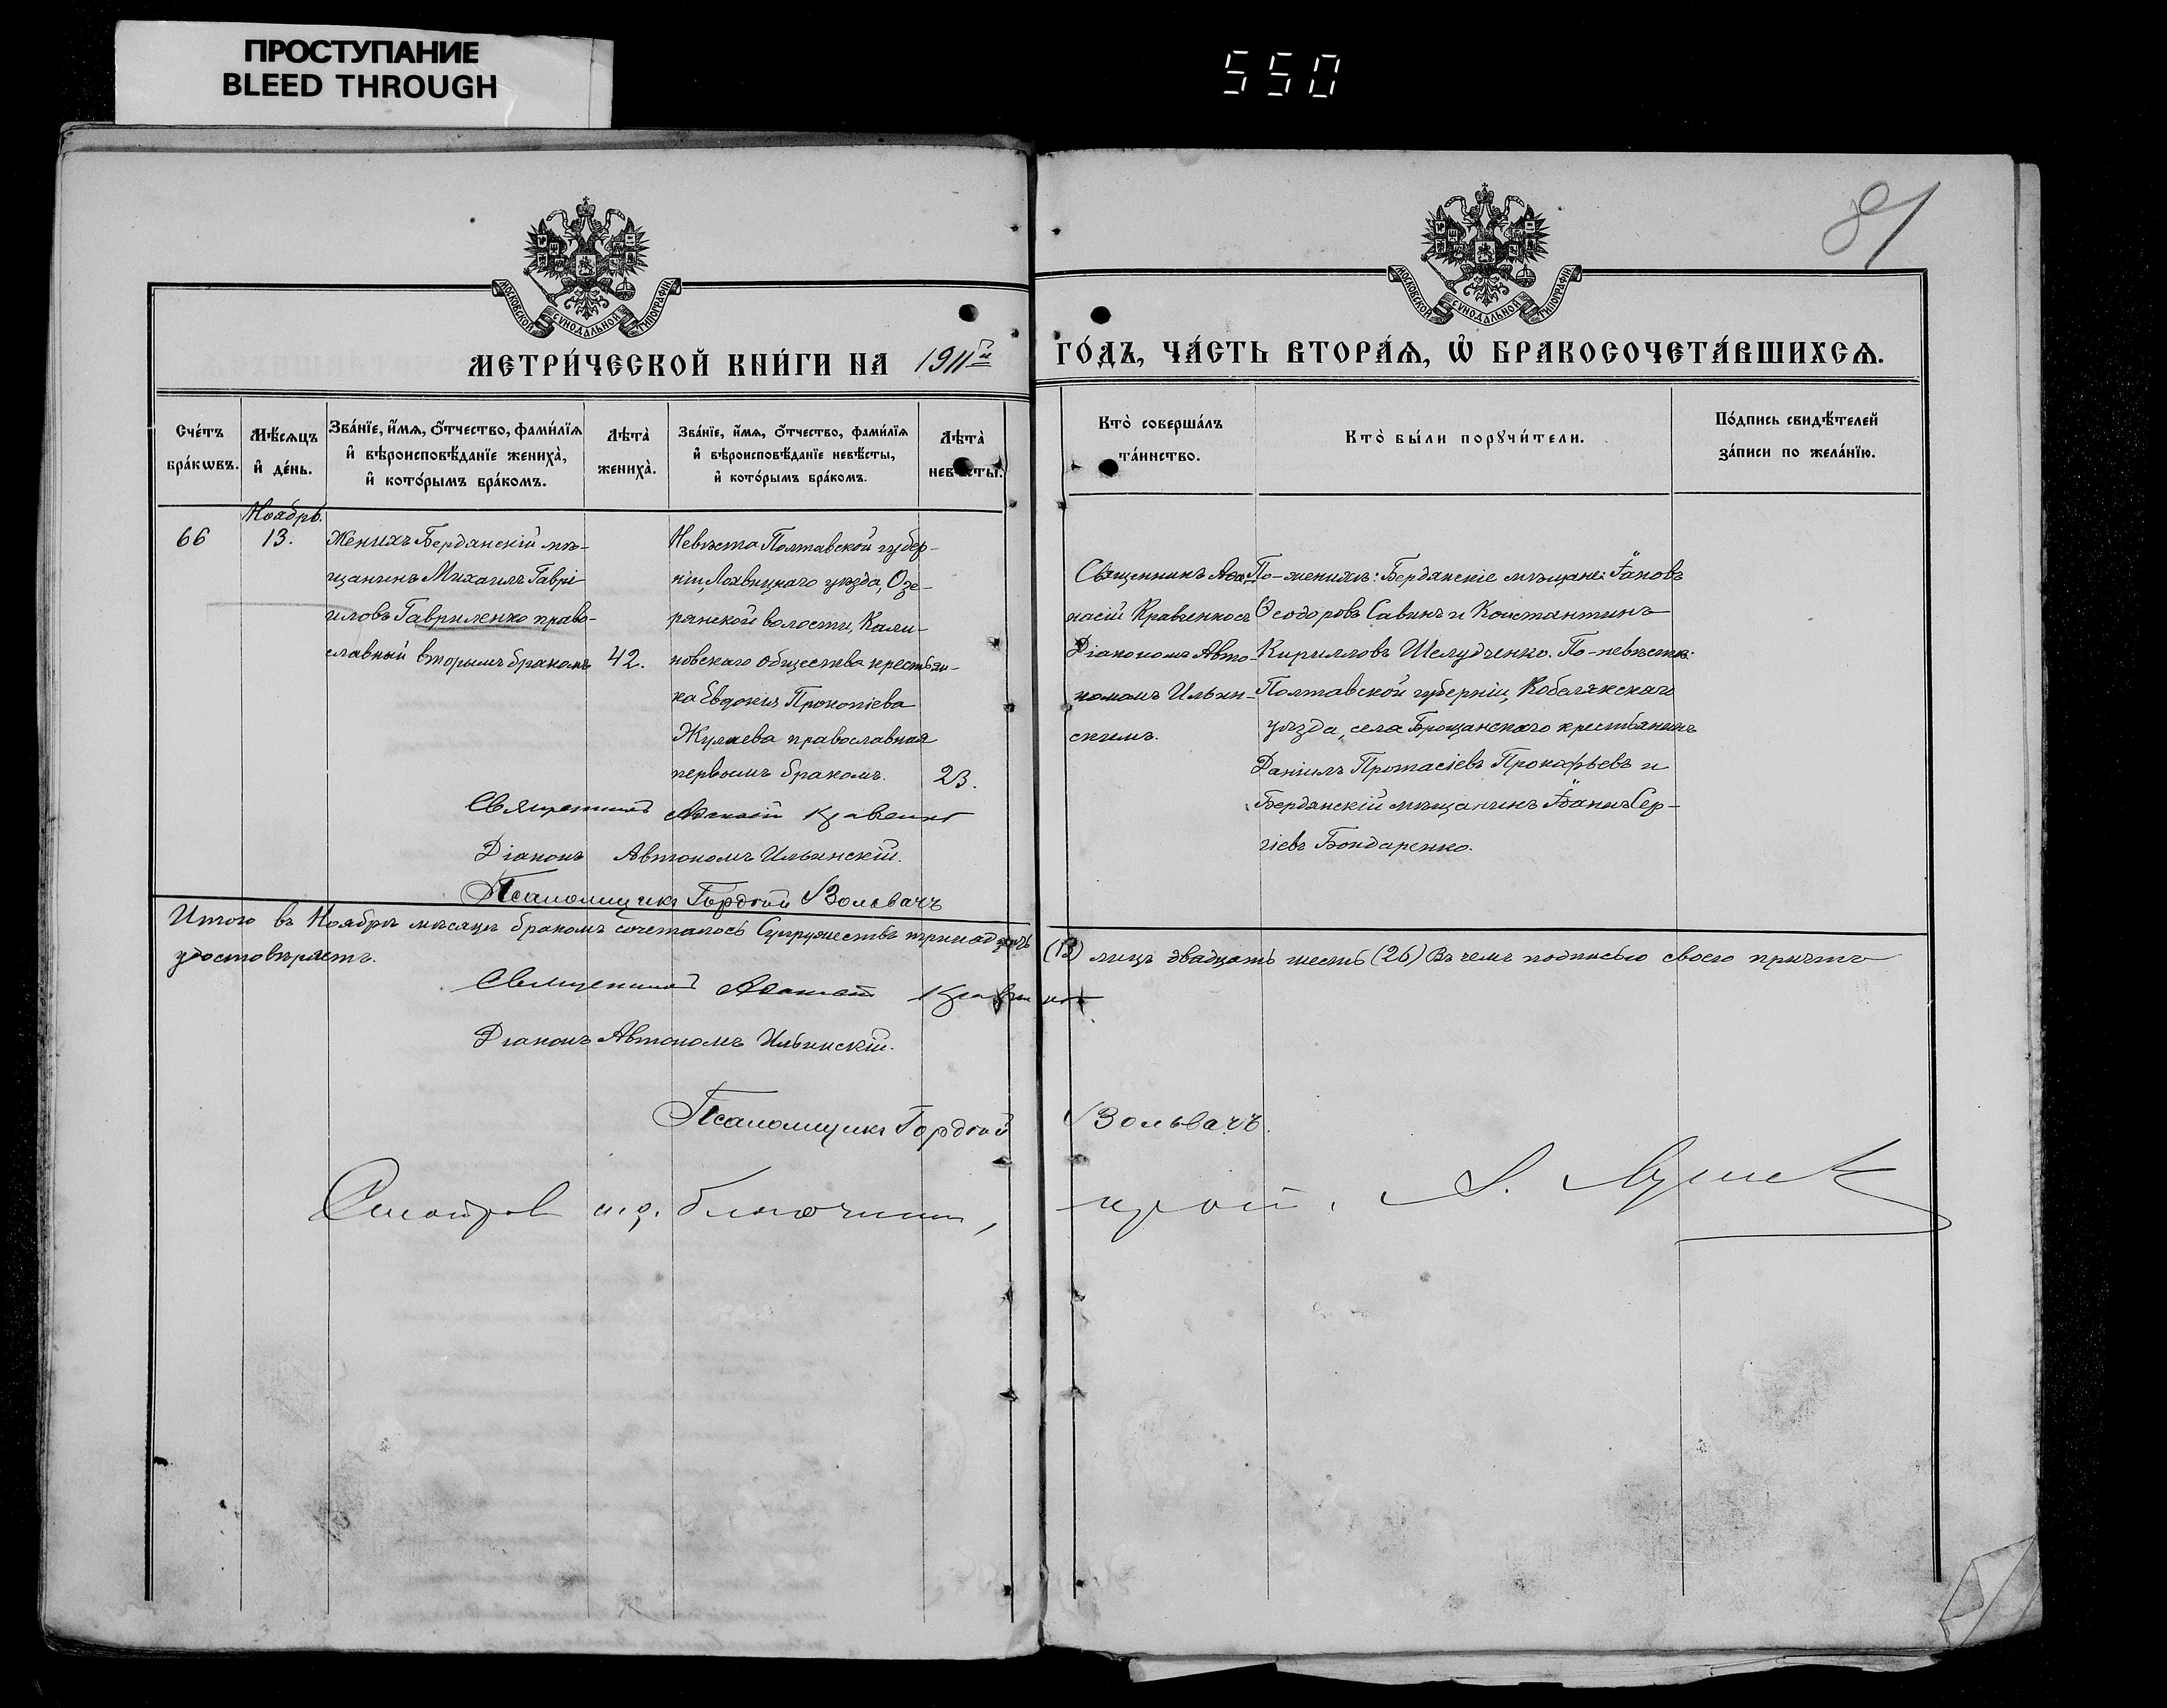 ПРОСТУПАНИЕ
BLEED THROUGH
550
81
МОСКОВСКОЙ СѴНОДАЛЬНОЙ ТИПОГРАФІИ
МОСКОВСКОЙ СѴНОДАЛЬНОЙ ТИПОГРАФІИ
МЕТРИ́ЧЕСКОЙ КНИ́ГИ НА 1911й ГО́ДЪ, ЧА́СТЬ ВТОРА́Ѧ, Ѽ БРАКОСОЧЕТА́ВШИХСѦ.
Сче́тъ бра́кѡвъ.
Мѣ́сяцъ и҆ де́нь.
Зва́нїе, и҆́мѧ, ѻ҆́тчество, фами́лїѧ и҆ вѣроисповѣ́данїе жениха̀, и҆ кото́рымъ бра́комъ.
Лѣта̀ жениха̀.
Зва́нїе, и҆́мѧ, ѻ҆́тчество, фами́лїѧ и҆ вѣроисповѣ́данїе невѣ́сты, и҆ кото́рымъ бра́комъ.
Лѣта̀ невѣ́сты.
Кто̀ соверша́лъ та́инство.
Кто̀ бы́ли порꙋчи́тели.
По́дпись свидѣ́телей за́писи по жела́нїю.
Ноябрь.
66
13.
Женихъ Бердянскій мѣ-
щанинъ Михаилъ Гаврі
иловъ Гавриленко право-
славный вторымъ бракомъ
42.
Невѣста Полтавской губер-
ніи, Лохвицкаго уѣзда, Озе-
рянской волости, Кали-
новскаго общества крестьян-
ка Евдокія Прокопіева
Жуляева православная
первымъ бракомъ.
23.
Священникъ Аѳа-
насій Кравченко съ
Діакономъ Авто-
номомъ Ильин-
скимъ.
По-женихѣ: Бердянскіе мѣщане: Іаковъ
Ѳеодоровъ Савинъ и Константинъ
Кирилловъ Шелудченко. По-невѣстѣ:
Полтавской губерніи, Кобелякскаго
уѣзда, села Брощанскаго крестьянинъ
Даніилъ Протасіевъ Прокофьевъ и
Бердянскій мѣщанинъ Іоаннъ Сер-
гіевъ Бондаренко.
Священникъ Аѳанасій Кравченко
Діаконъ Автономъ Ильинскій.
Псаломщикъ Гордѣй Вольвачъ
Итого въ Ноябрѣ мѣсяцѣ бракомъ сочеталось Супружествъ тринадцать (13) лицъ двадцать шесть (26) Въ чемъ подписью своею причтъ
удостовѣряетъ.
Священникъ Аѳанасій Кравченко
Діаконъ Автономъ Ильинскій.
Псаломщикъ Гордѣй Вольвачъ.
Смотрѣлъ и.д. благочинн, прот. А.